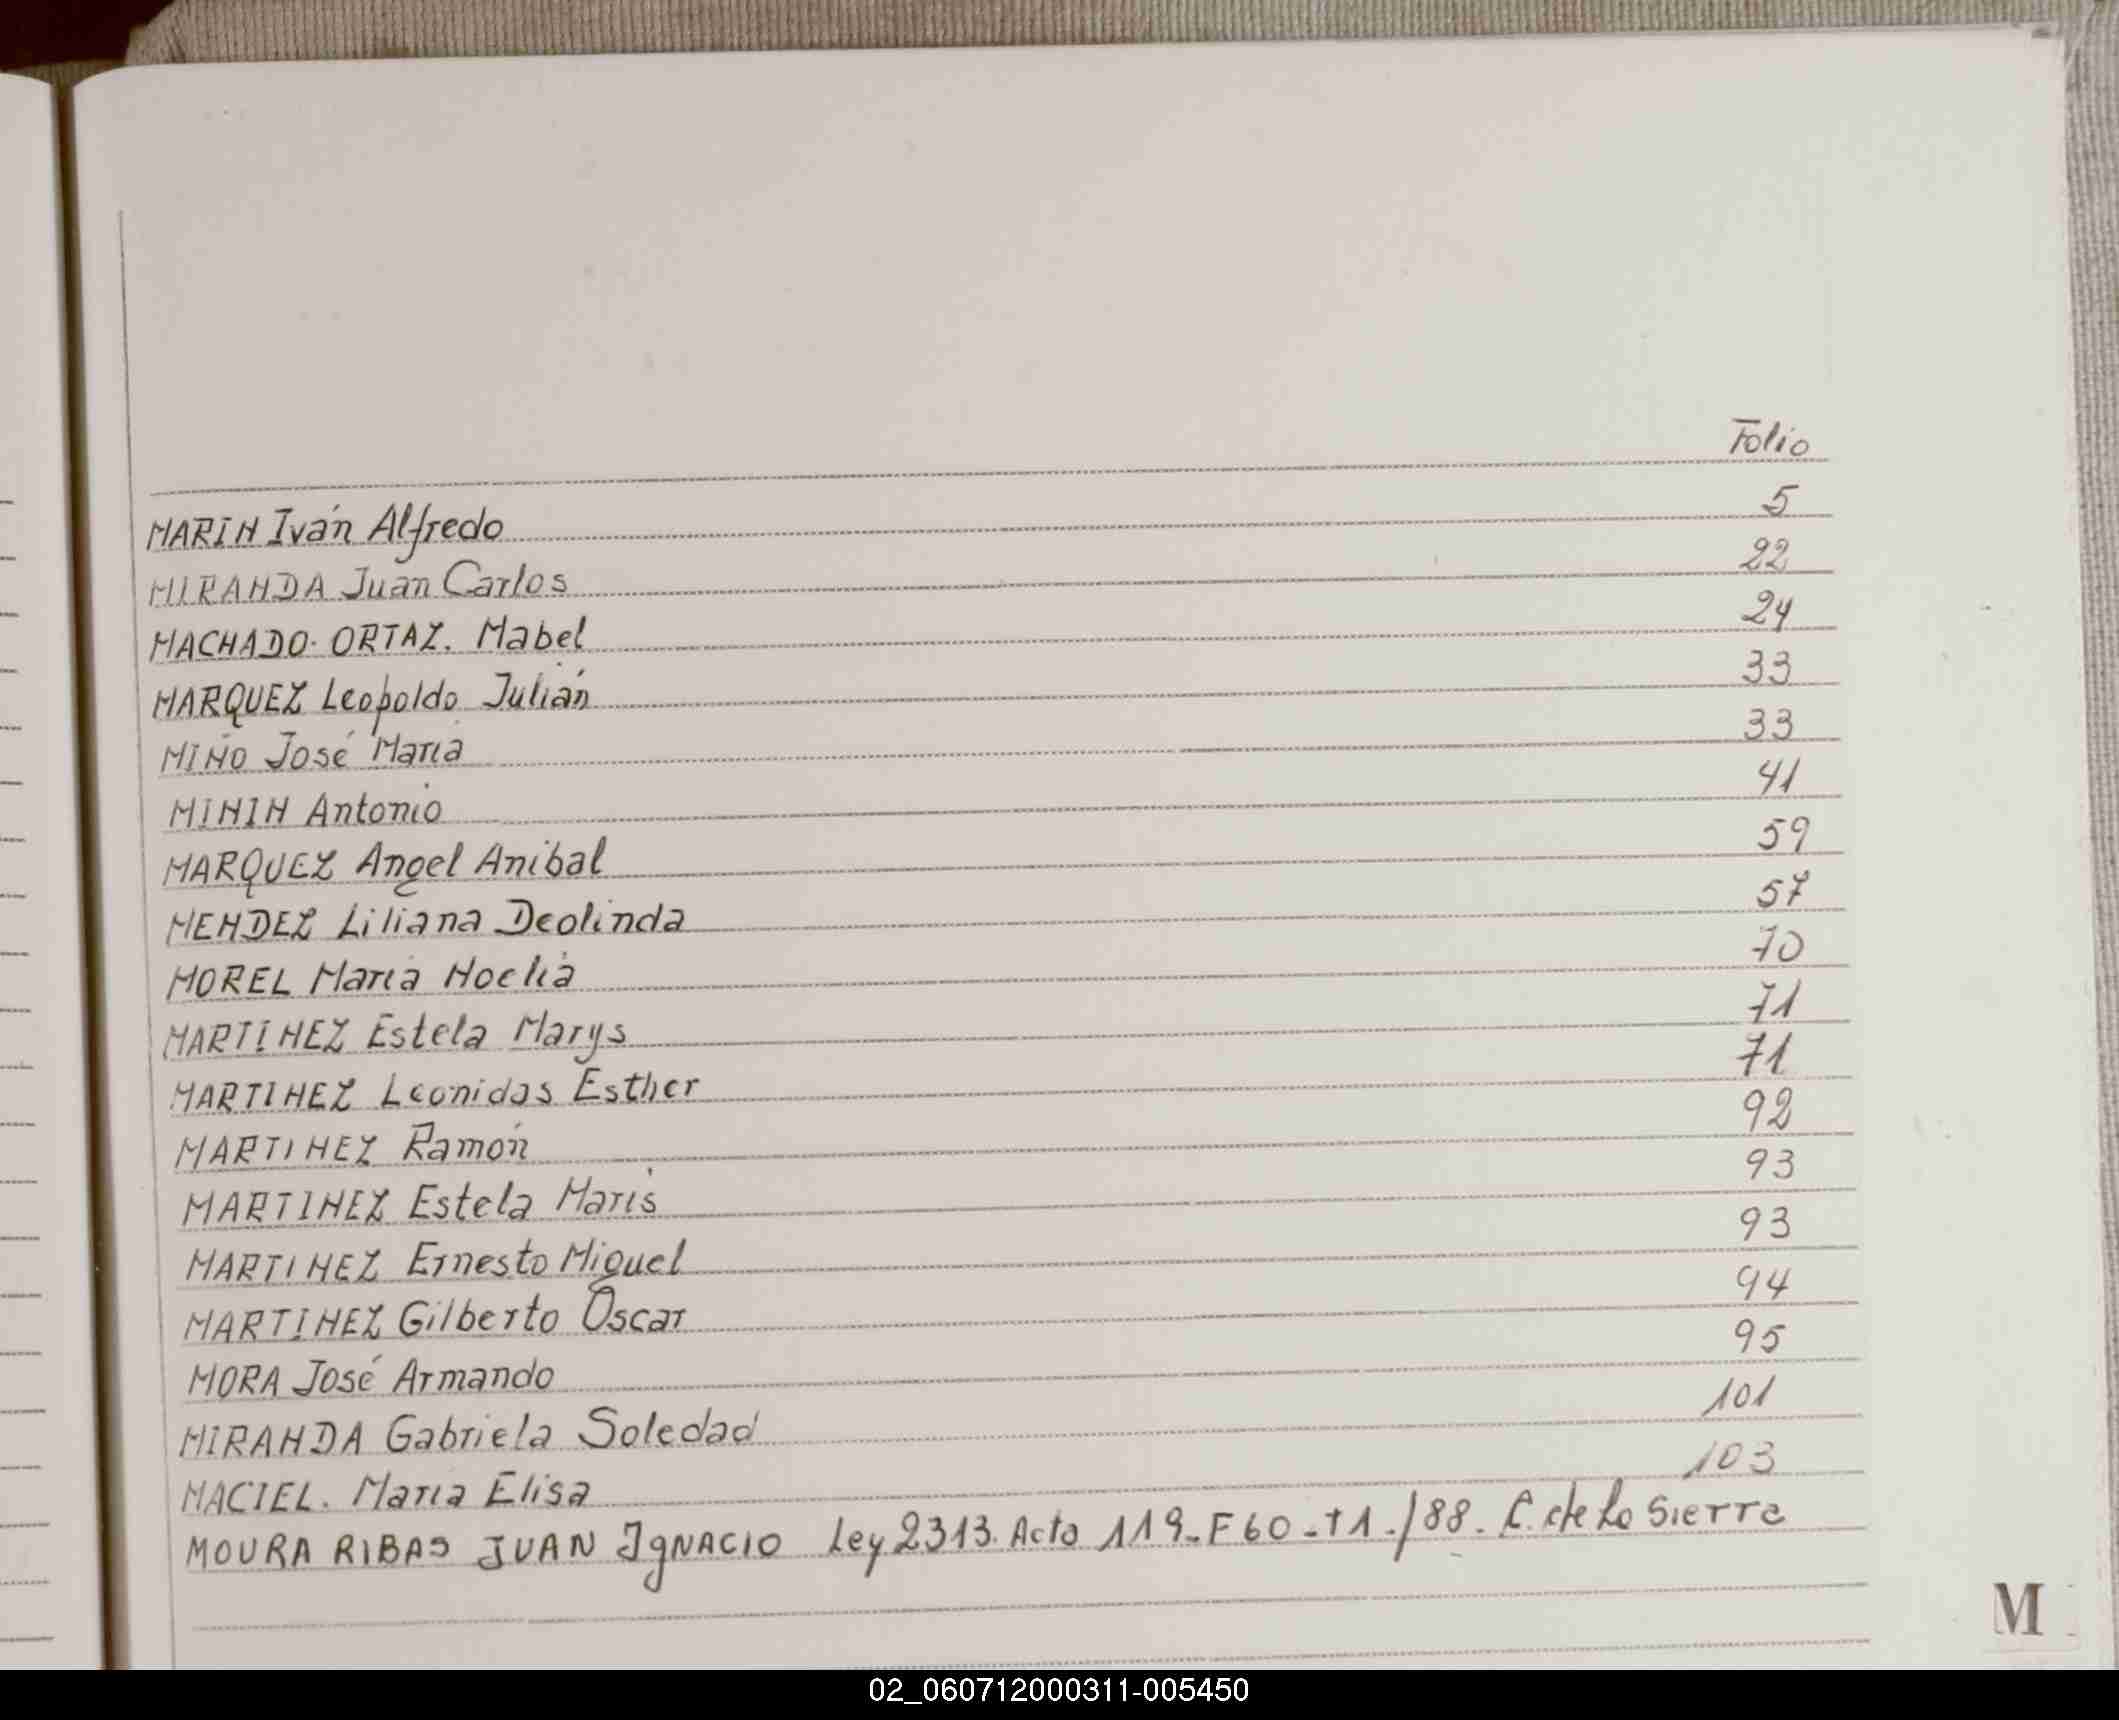 Folio
MARIN Iván Alfredo 5
MIRANDA Juan Carlos 22
MACHADO. ORTAZ. Mabel 24
MARQUEZ Leopoldo Julián 33
MIÑO José María 33
MININ Antonio 41
MARQUEZ Angel Anibal 59
MENDEZ Liliana Deolinda 57
MOREL María Noelia 70
MARTINEZ Estela Marys 71
MARTINEZ Leonidas Esther 71
MARTINEZ Ramón 92
MARTINEZ Estela Maris 93
MARTINEZ Ernesto Miguel 93
MARTINEZ Gilberto Oscar 94
MORA José Armando 95
MIRANDA Gabriela Soledad 101
MACIEL. María Elisa 103
MOURA RIBAS JUAN IgNACIO Ley 2313. Acta 119-F60-T1./88. C. de La Sierra
M
02_060712000311-005450